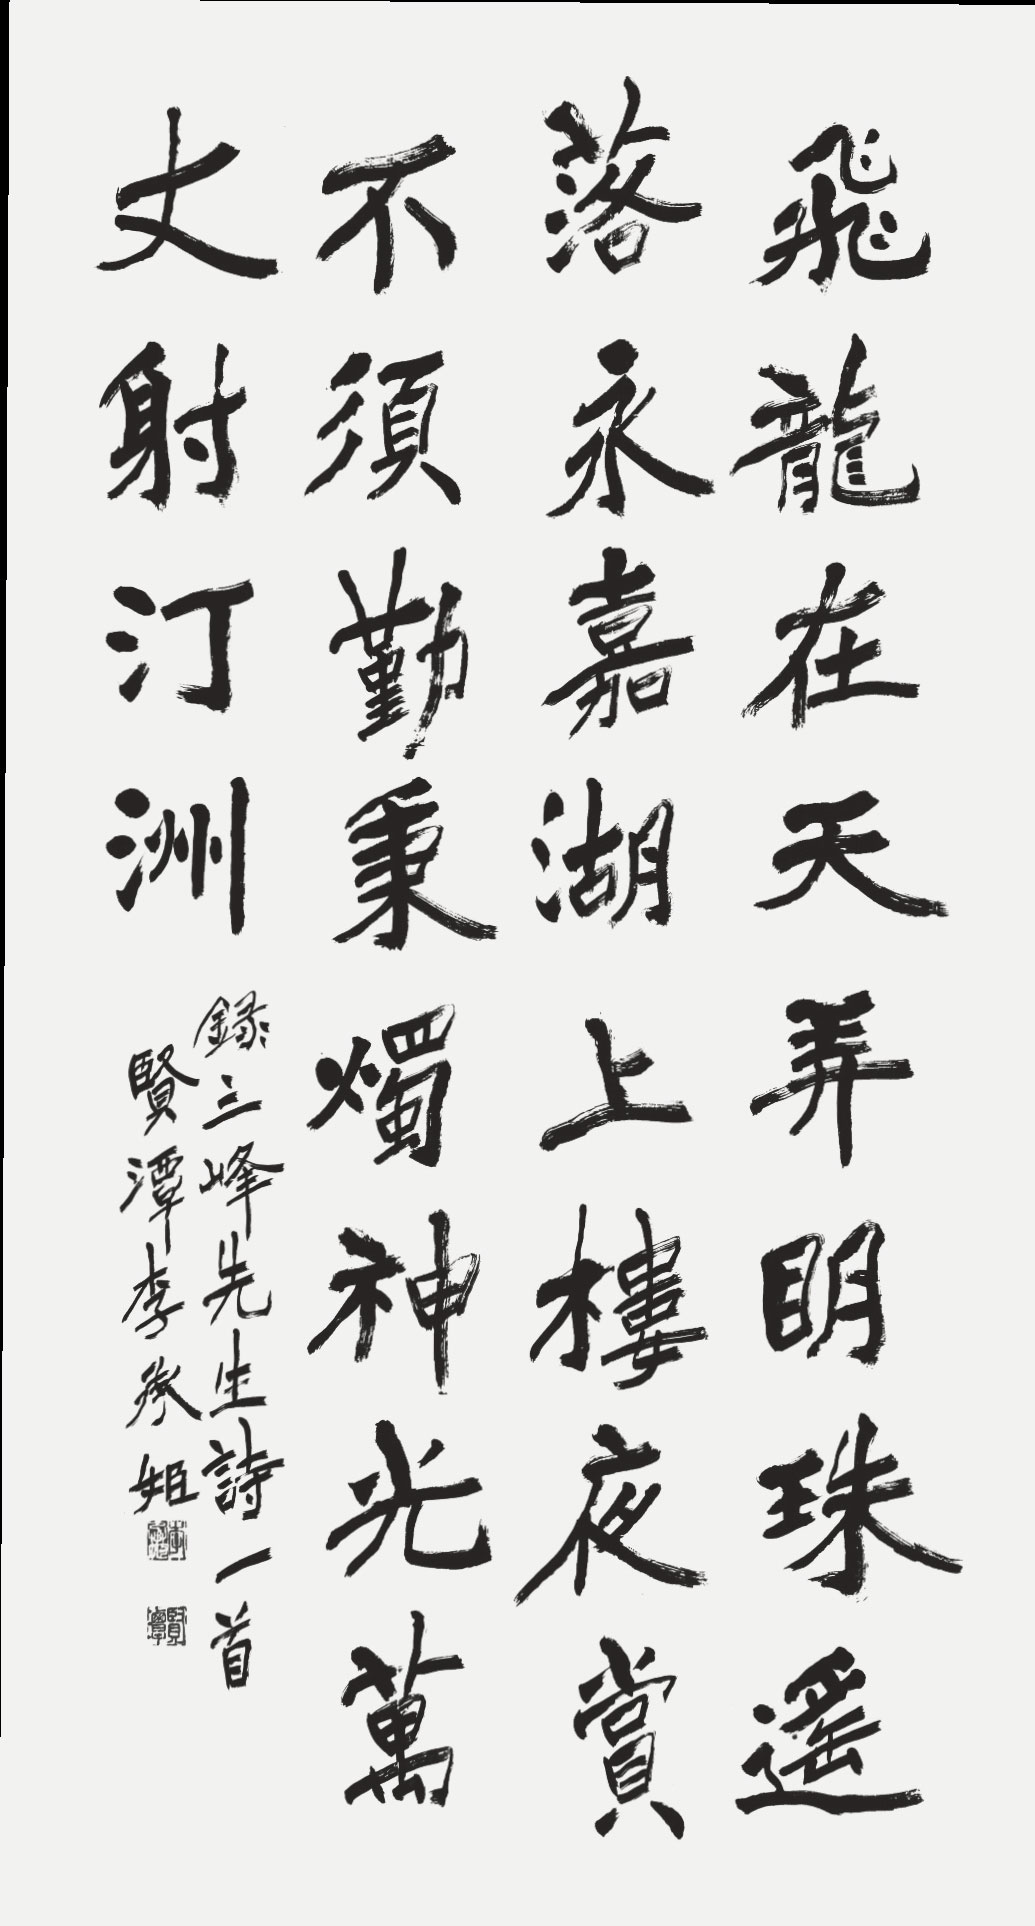 飛龍在天弄明珠遥
落永嘉湖上樓夜賞
不須勤秉燭神光萬
丈射汀洲
録三峰先生詩一首
賢潭李承姫